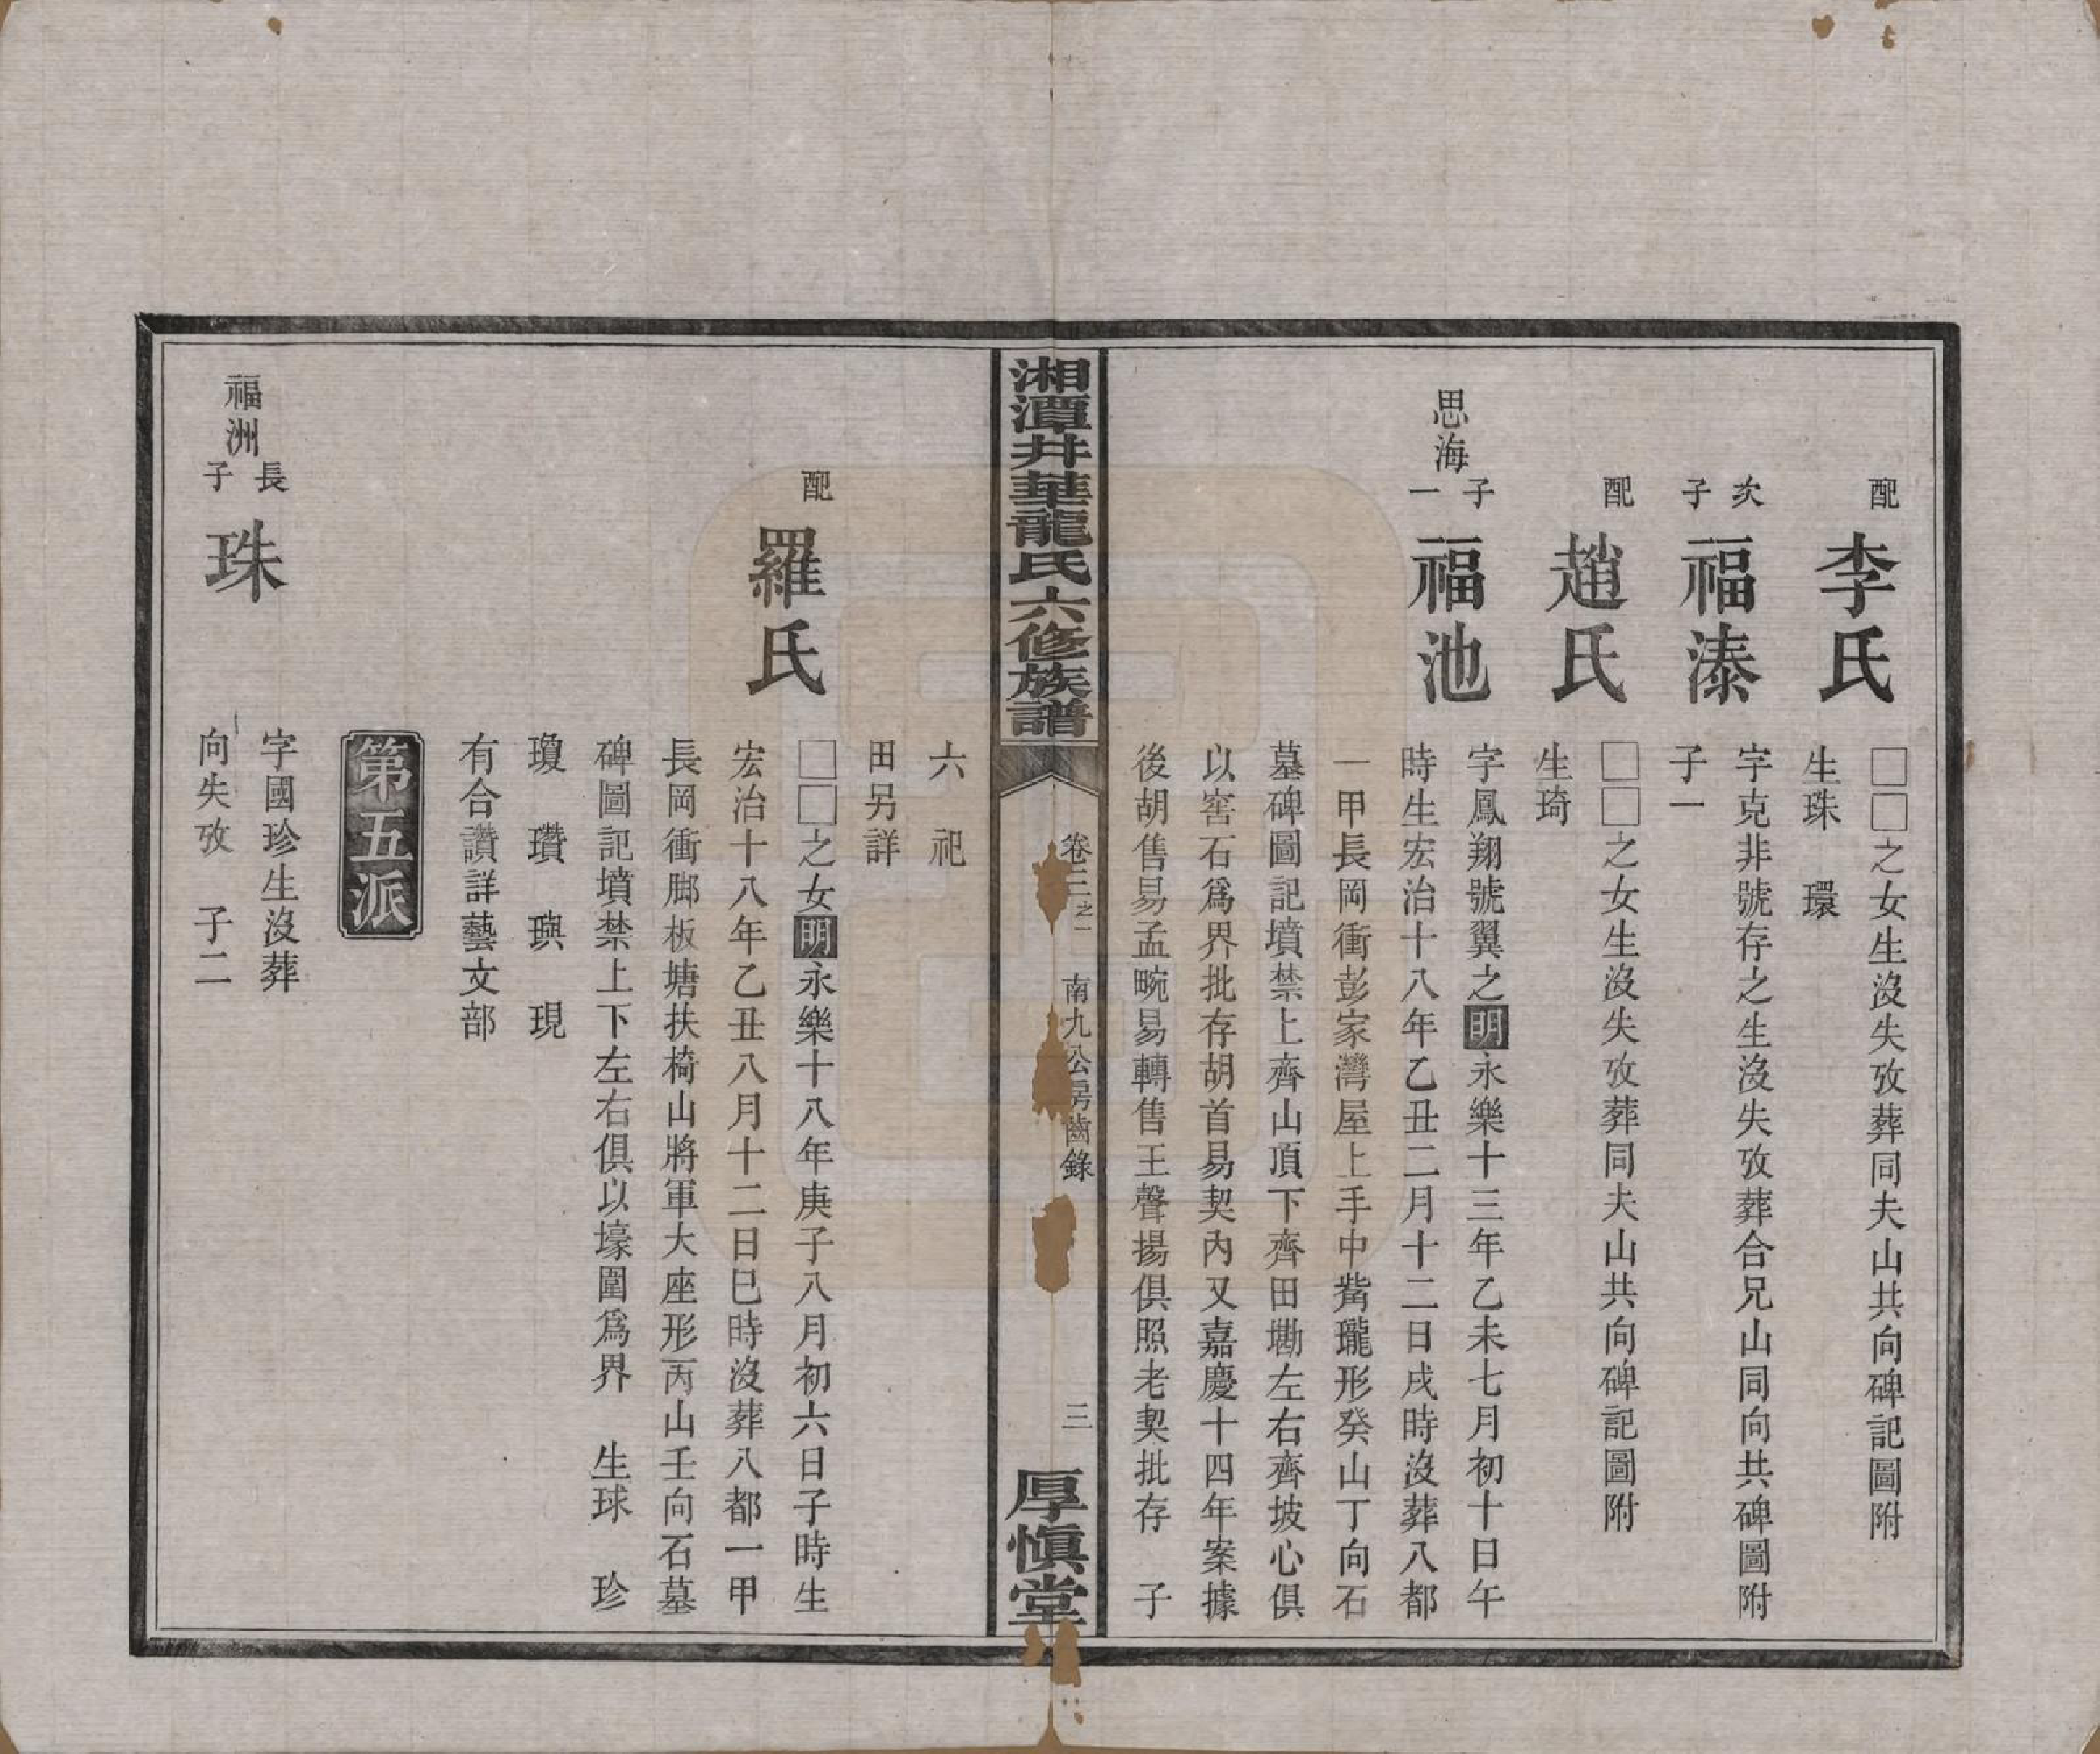 配
李氏
□□之女生沒失攷葬同夫山共向碑記圖附
生珠　環
次子
福溱
字克非號存之生沒失攷葬合兄山同向共碑圖附
子一
配
趙氏
□□之女生沒失攷葬同夫山共向碑記圖附
生琦
思海
子一
福池
字鳳翔號翼之明永樂十三年乙未七月初十日午
時生宏治十八年乙丑二月十二日戌時沒葬八都
一甲長岡衝彭家灣屋上手中形癸山丁向石
墓碑圖記墳禁上齊山頂下齊田墈左右齊坡心俱
以窖石爲界批存胡首易契內又嘉慶十四年案據
後胡售易孟畹易轉售王聲揚俱照老契批存　子
湘潭井華龍氏六修族譜
卷三之一
南九公房齒錄
三
厚愼堂
六　祀
田另詳
配
羅氏
□□之女明永樂十八年庚子八月初六日子時生
宏治十八年乙丑八月十二日巳時沒葬八都一甲
長岡衝脚板塘扶椅山將軍大座形丙山壬向石墓
碑圖記墳禁上下左右俱以壕圍爲界　生球　珍
瓊　瓚　璵　現
有合讚詳藝文部
第五派
福洲
長子
珠
字國珍生沒葬
向失攷　子二